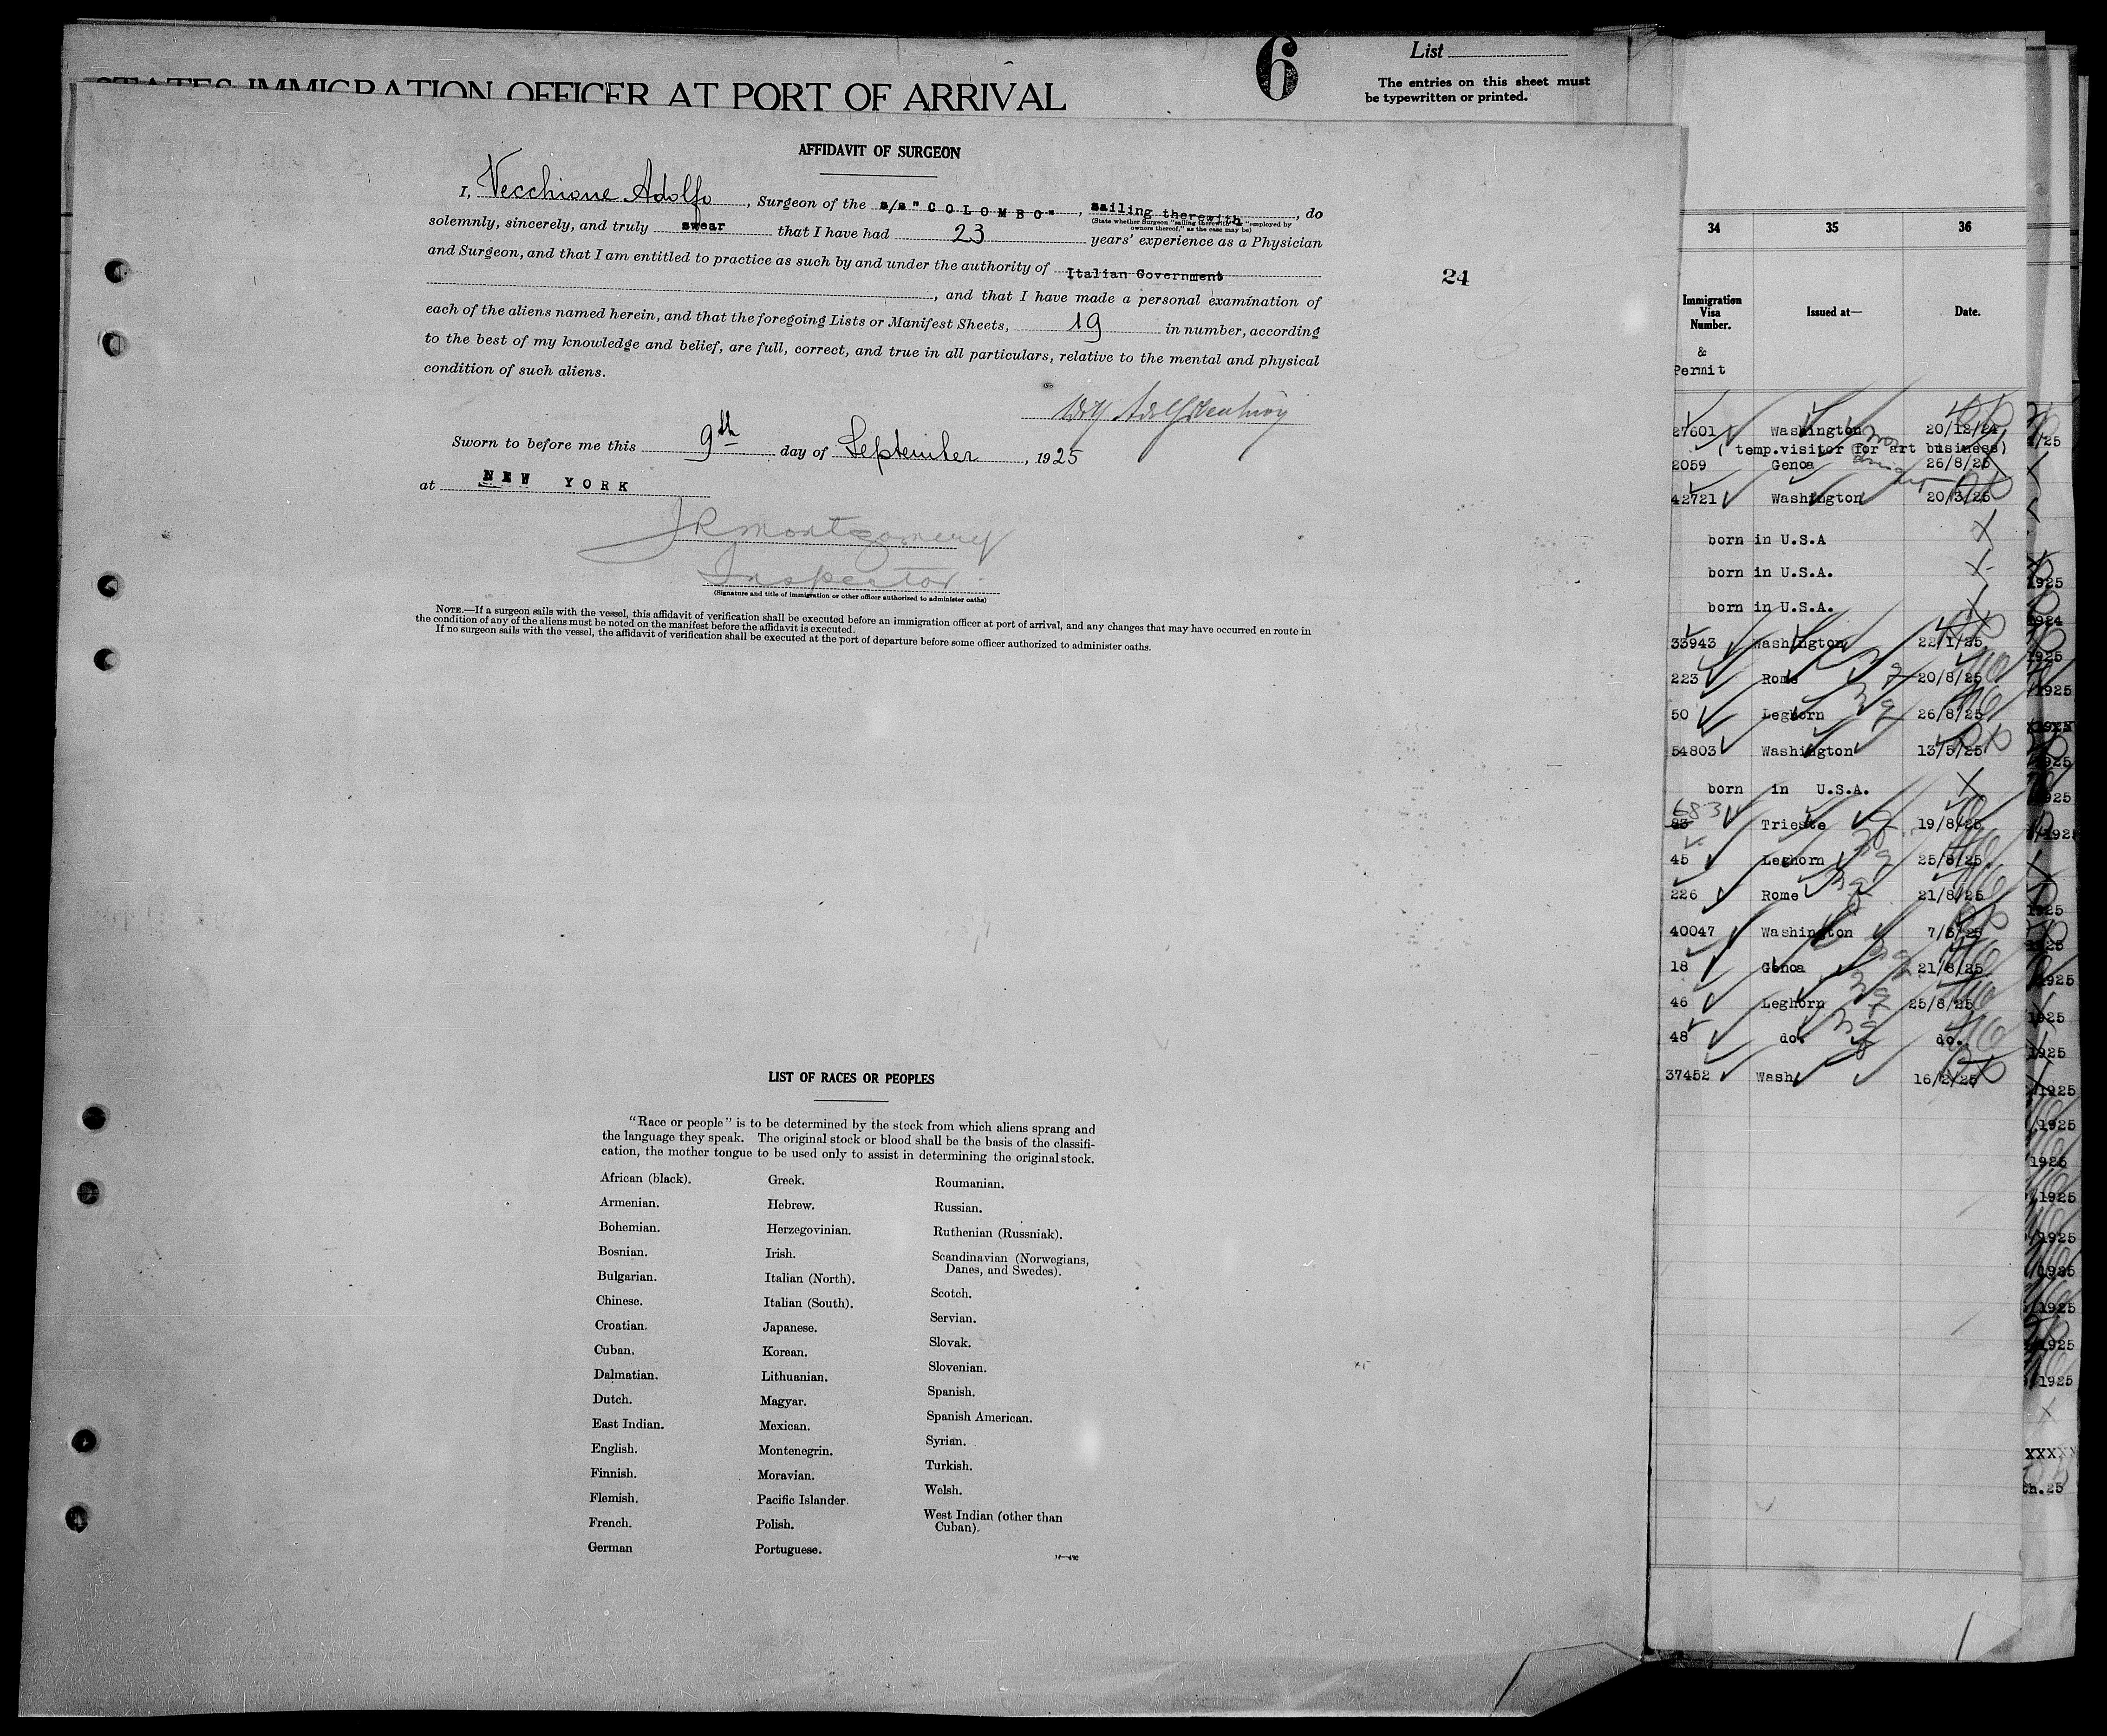 6
List
STATES IMMIGRATION OFFICER AT PORT OF ARRIVAL
The entries on this sheet must
be typewritten or printed.
AFFIDAVIT OF SURGEON
I, Vecchione Adolfo, Surgeon of the s/s "COLOMBO", sailing therewith, do
(State whether Surgeon "sailing therewith," "employed by
owners thereof," as the case may be)
solemnly, sincerely, and truly swear that I have had 23 years' experience as a Physician
and Surgeon, and that I am entitled to practice as such by and under the authority of Italian Government
, and that I have made a personal examination of
each of the aliens named herein, and that the foregoing Lists or Manifest Sheets, 19 in number, according
to the best of my knowledge and belief, are full, correct, and true in all particulars, relative to the mental and physical
condition of such aliens.
24
Sworn to before me this 9th day of September, 1925
at NEW YORK
JRMontgomery
Inspector
(Signature and title of immigration or other officer authorized to administer oaths)
NOTE.—If a surgeon sails with the vessel, this affidavit of verification shall be executed before an immigration officer at port of arrival, and any changes that may have occurred en route in
the condition of any of the aliens must be noted on the manifest before the affidavit is executed.
If no surgeon sails with the vessel, the affidavit of verification shall be executed at the port of departure before some officer authorized to administer oaths.
LIST OF RACES OR PEOPLES
"Race or people" is to be determined by the stock from which aliens sprang and
the language they speak. The original stock or blood shall be the basis of the classifi-
cation, the mother tongue to be used only to assist in determining the original stock.
African (black).
Armenian.
Bohemian.
Bosnian.
Bulgarian.
Chinese.
Croatian.
Cuban.
Dalmatian.
Dutch.
East Indian.
English.
Finnish.
Flemish.
French.
German
Greek.
Hebrew.
Herzegovinian.
Irish.
Italian (North).
Italian (South).
Japanese.
Korean.
Lithuanian.
Magyar.
Mexican.
Montenegrin.
Moravian.
Pacific Islander.
Polish.
Portuguese.
Roumanian.
Russian.
Ruthenian (Russniak).
Scandinavian (Norwegians,
Danes, and Swedes).
Scotch.
Servian.
Slovak.
Slovenian.
Spanish.
Spanish American.
Syrian.
Turkish.
Welsh.
West Indian (other than
Cuban).
34 35 36
Immigration
Visa
Number.
&
Permit
Issued at—
Date.
27601 Washington 20/12/24
(temp.visitor for art business)
2059 Genoa 26/8/25
42721 Washington 20/3/25
born in U.S.A
born in U.S.A.
born in U.S.A.
33943 Washington 22/1/25
223 Rome 20/8/25
50 Leghorn 26/8/25
54803 Washington 13/5/25
born in U.S.A.
683
83 Trieste 19/8/25
45 Leghorn 25/8/25
226 Rome 21/8/25
40047 Washington
18 Genoa 21/8/25
46 Leghorn 25/8/25
48 do. do.
37452 Wash. 16/2/25